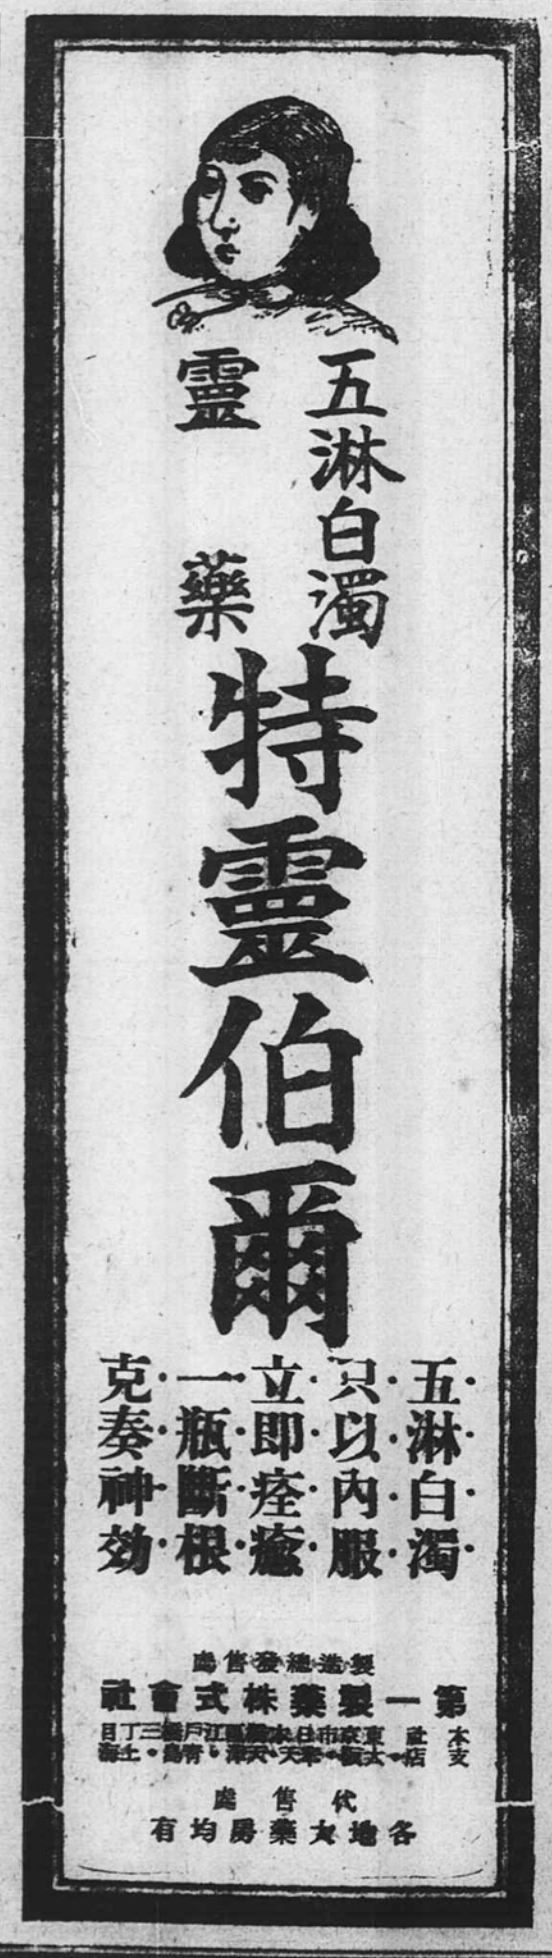 五淋白濁
靈藥
特靈伯爾
五淋白濁
只以內服
立即痊癒
一瓶斷根
克奏神効
製造總發售處
第一製藥株式會社
本社 東京市日本橋區江戶橋三丁目
支店 大阪
代售處
各地大藥房均有